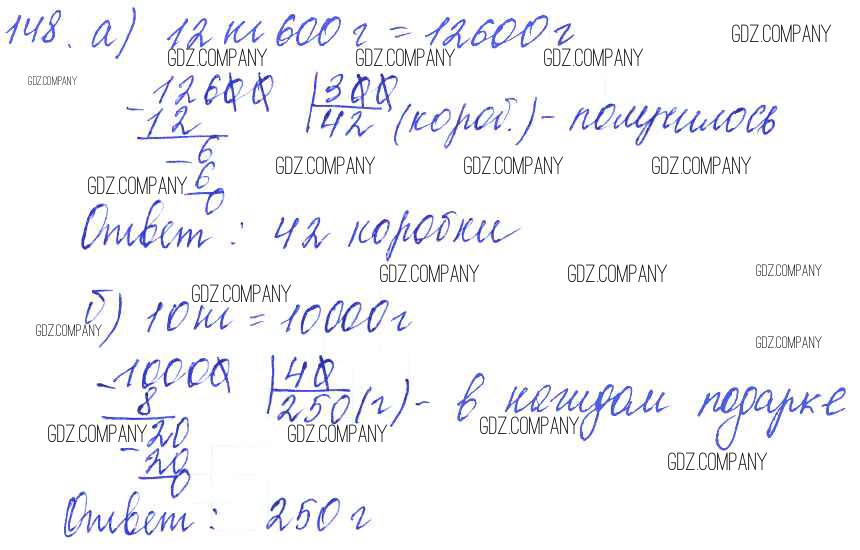 148. а) 12 кг 600 г = 12600 г
GDZ.COMPANY GDZ.COMPANY GDZ.COMPANY GDZ.COMPANY
GDZ.COMPANY
- 12600 | 300
12 42 (короб.) - получилось
- 6 GDZ.COMPANY GDZ.COMPANY GDZ.COMPANY
GDZ.COMPANY 6
0
Ответ: 42 коробки
GDZ.COMPANY GDZ.COMPANY GDZ.COMPANY
GDZ.COMPANY
б) 10 кг = 10000 г
GDZ.COMPANY
GDZ.COMPANY
- 10000 | 40
8 250 (г) - в каждом подарке
GDZ.COMPANY GDZ.COMPANY GDZ.COMPANY
- 20
20 GDZ.COMPANY
0
Ответ: 250 г